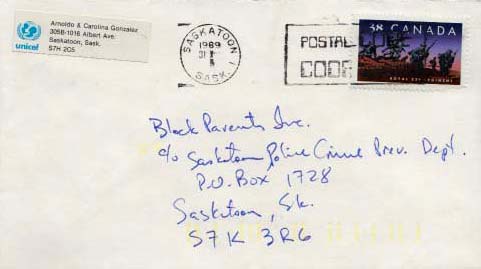 unicef
Arnoldo & Carolina Gonzalez
305B-1016 Albert Ave.
Saskatoon, Sask.
S7H 2G5
SASKATOON
1989
SASK.
POSTAL
CODE
38 CANADA
Block Parents Inc.
c/o Saskatoon Police Crime Prev. Dept.
P.O. Box 1728
Saskatoon, Sk.
S7K 3R6